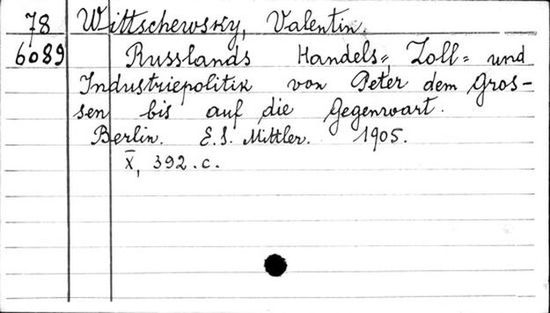 78 Wittschewsky, Valentin.
6089 Russlands Handels=, Zoll= und
Industriepolitik von Peter dem Gros-
sen bis auf die Gegenwart.
Berlin. E.S. Mittler. 1905.
X, 392.c.